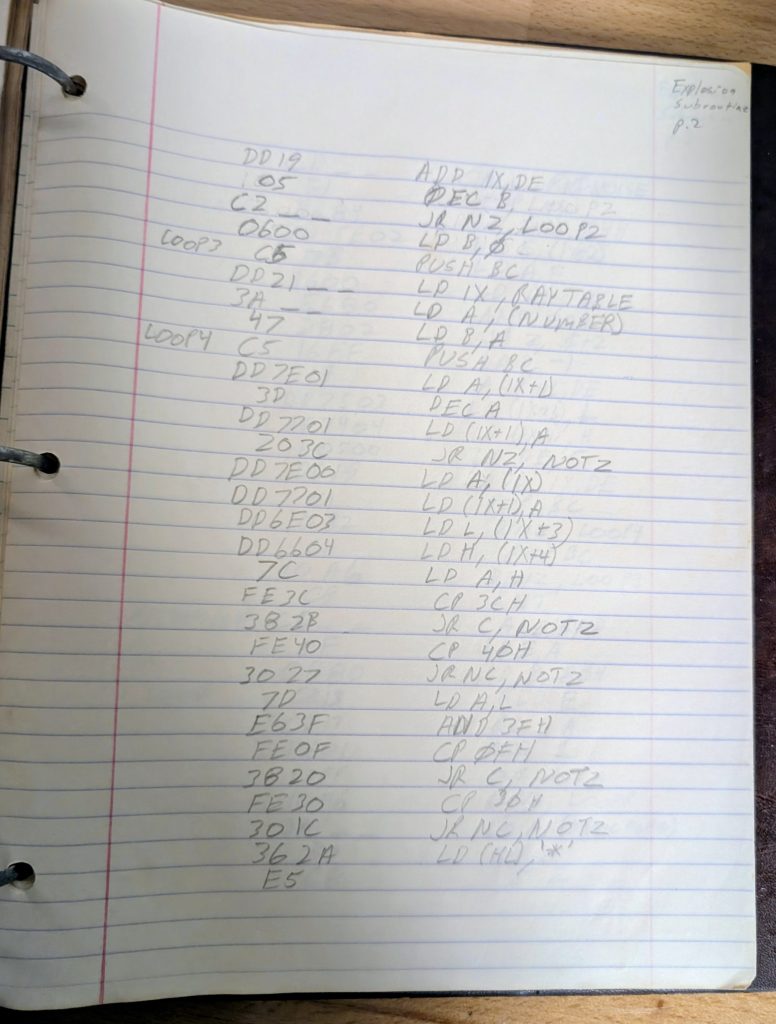 Explosion
Subroutine
p.2
DD19 ADD IX,DE
05 DEC B
C2 _ _ JR NZ, LOOP2
0600 LD B,0
LOOP3 C5 PUSH BC
DD21 _ _ LD IX, RAYTABLE
3A _ _ LD A, (NUMBER)
47 LD B,A
LOOP4 C5 PUSH BC
DD7E01 LD A, (IX+1)
3D DEC A
DD7701 LD (IX+1), A
203C JR NZ, NOTZ
DD7E00 LD A, (IX)
DD7701 LD (IX+1), A
DD6E03 LD L, (IX+3)
DD6604 LD H, (IX+4)
7C LD A, H
FE3C CP 3CH
382B JR C, NOTZ
FE40 CP 40H
3027 JR NC, NOTZ
7D LD A, L
E63F AND 3FH
FE0F CP 0FH
3820 JR C, NOTZ
FE30 CP 30H
301C JR NC, NOTZ
362A LD (HL), '*'
E5